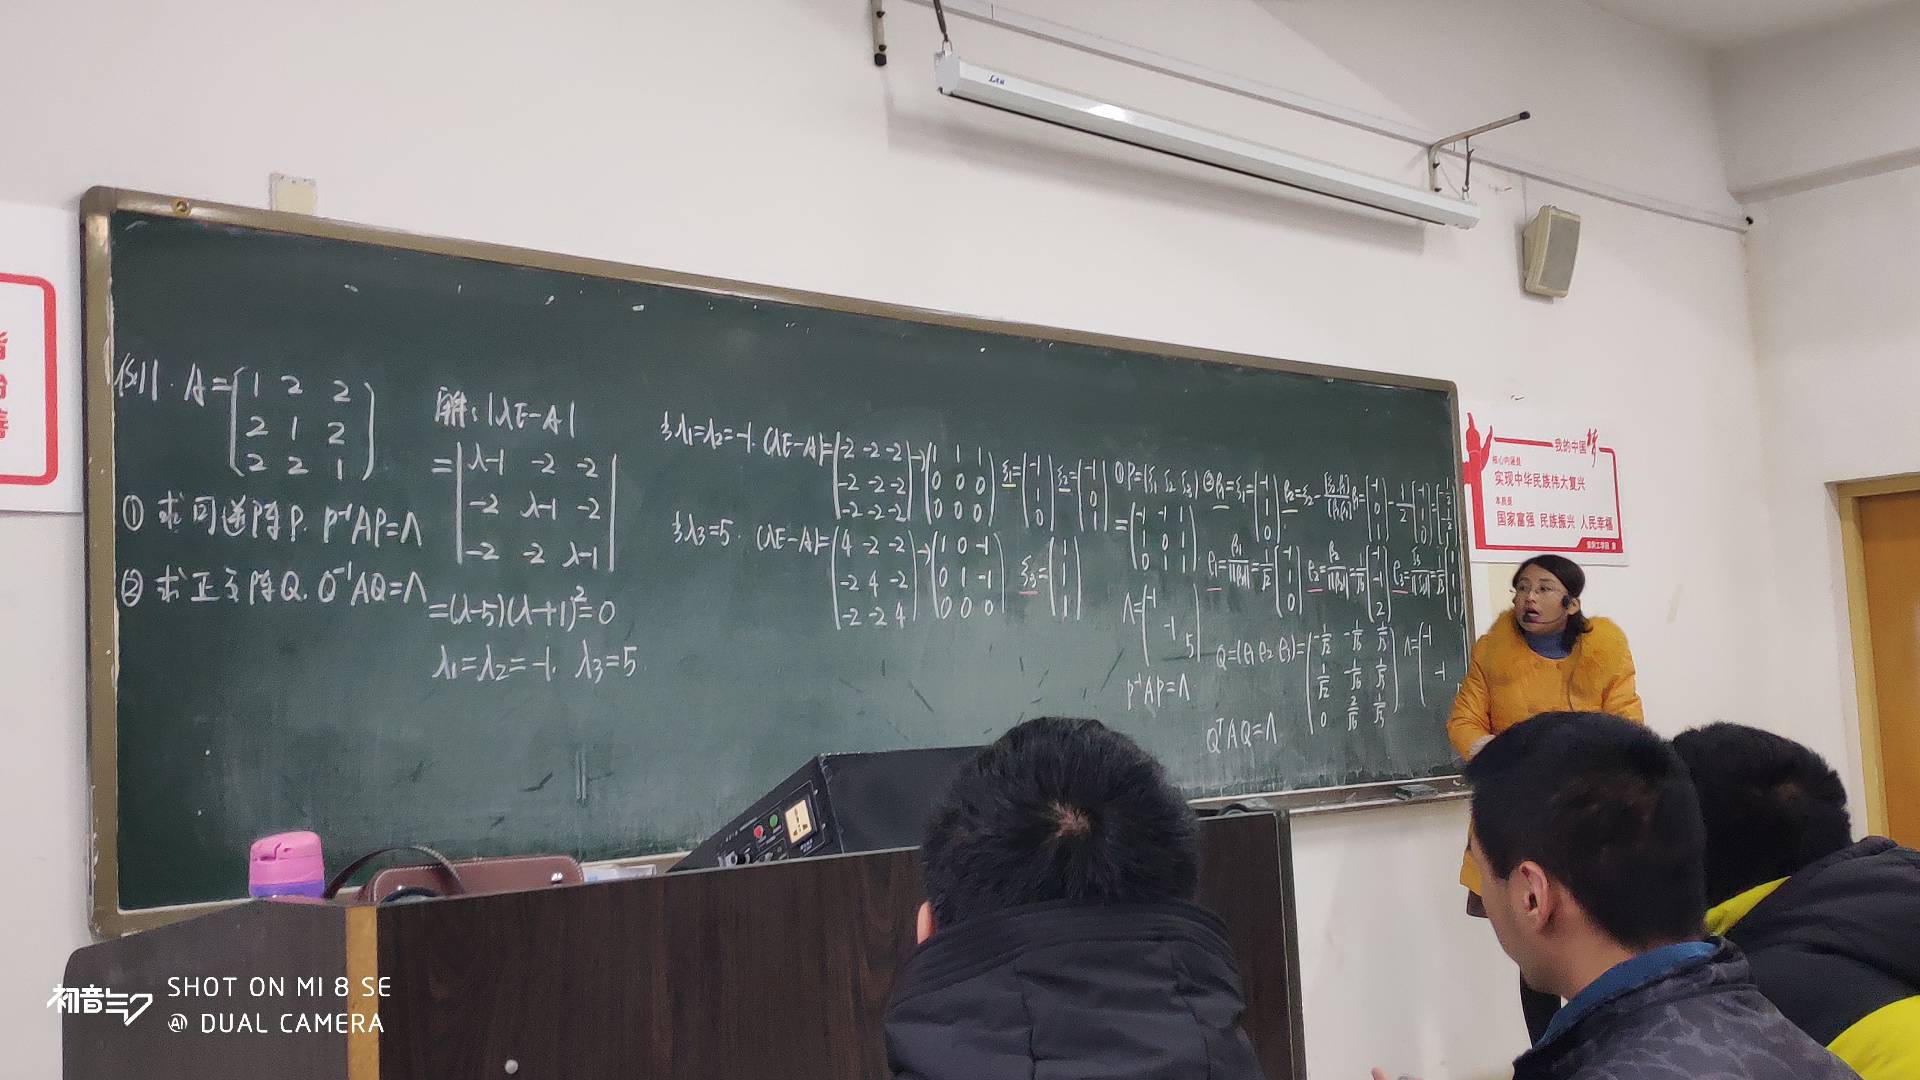 例1. A=(1 2 2
2 1 2
2 2 1)
① 求可逆阵P. P⁻¹AP=Λ
② 求正交阵Q. Q⁻¹AQ=Λ
解: |λE-A|
=|λ-1 -2 -2
-2 λ-1 -2
-2 -2 λ-1|
=(λ-5)(λ+1)²=0
λ₁=λ₂=-1. λ₃=5.
当λ₁=λ₂=-1. (λE-A)=(-2 -2 -2
-2 -2 -2
-2 -2 -2)→(1 1 1
0 0 0
0 0 0) ξ₁=(-1
1
0) ξ₂=(-1
0
1)
当λ₃=5. (λE-A)=(4 -2 -2
-2 4 -2
-2 -2 4)→(1 0 -1
0 1 -1
0 0 0) ξ₃=(1
1
1)
① P=(ξ₁ ξ₂ ξ₃)
=(-1 -1 1
1 0 1
0 1 1)
Λ=(-1
-1
5)
P⁻¹AP=Λ
② β₁=ξ₁=(-1
1
0) β₂=ξ₂-[ξ₂,β₁]/[β₁,β₁]β₁=(-1
0
1)-1/2(-1
1
0)=(-1/2
-1/2
1)
ρ₁=β₁/||β₁||=1/√2(-1
1
0) ρ₂=β₂/||β₂||=1/√6(-1
-1
2) ρ₃=ξ₃/||ξ₃||=1/√3(1
1
1)
Q=(ρ₁ ρ₂ ρ₃)=(-1/√2 -1/√6 1/√3
1/√2 -1/√6 1/√3
0 2/√6 1/√3) Λ=(-1
-1
QᵀAQ=Λ
我的中国梦
核心内涵是
实现中华民族伟大复兴
本质是
国家富强 民族振兴 人民幸福
初音ミク
SHOT ON MI 8 SE
AI DUAL CAMERA